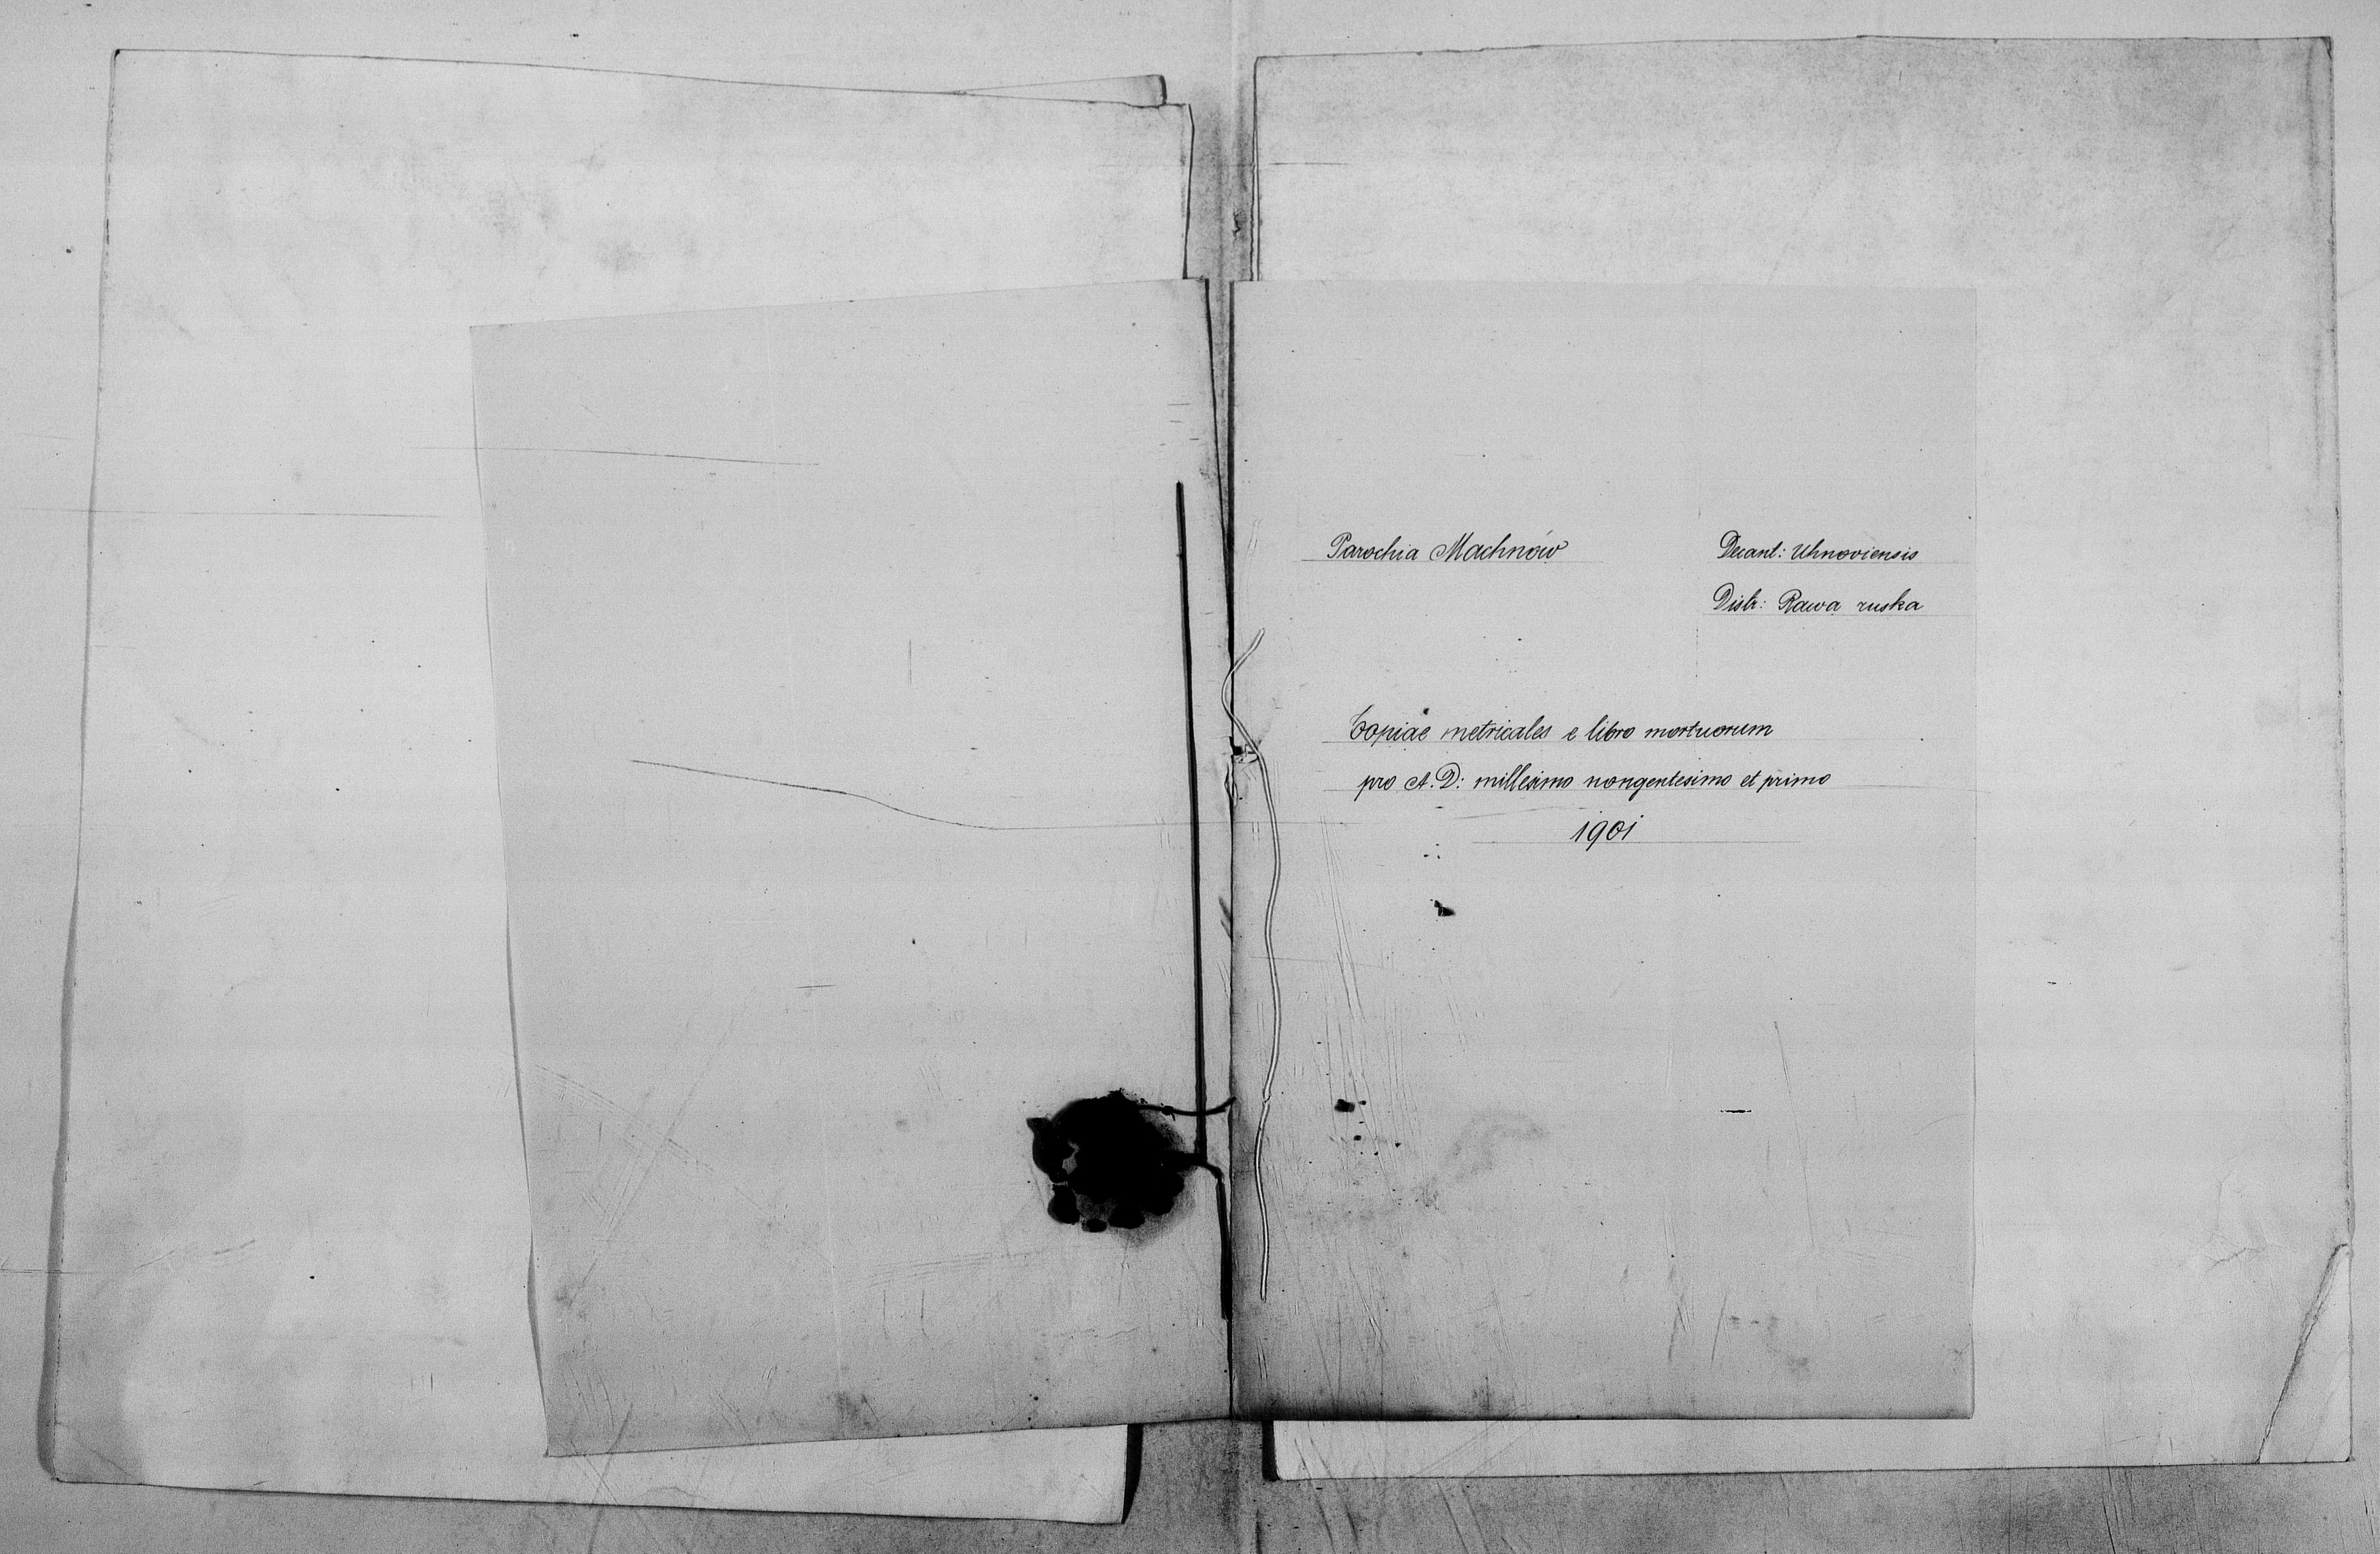 Parochia Machnów
Decant: Uhnoviensis
Distr: Rawa ruska
Copiae metricales e libro mortuorum
pro A. D: millesimo nongentesimo et primo
1901